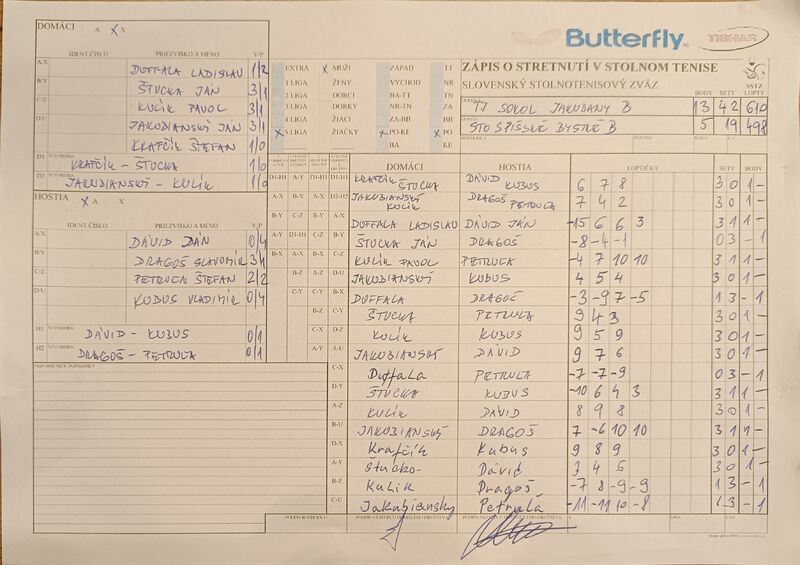 DOMÁCI A X X
IDENT.ČÍSLO PRIEZVISKO A MENO V/P
A/X DUFFALA LADISLAU 1/2
B/Y ŠTUCKA JÁN 3/1
C/Z KULÍK PAVOL 3/1
D/U JAKUBIANSKÝ JÁN 3/1
KRAFČÍK ŠTEFAN 1/0
D1 KRAFČÍK - ŠTUCKA 1/0
D2 JAKUBIANSKÝ - KULÍK 1/0
HOSTIA X A X
IDENT.ČÍSLO PRIEZVISKO A MENO V/P
A/X DÁVID JÁN 0/4
B/Y DRAGOŠ SLAVOMÍR 3/1
C/Z PETRUĽA ŠTEFAN 2/2
D/U KUBUS VLADIMÍR 0/4
H1 DÁVID - KUBUS 0/1
H2 DRAGOŠ - PETRUĽA 0/1
PRIPOMIENKY, POZNÁMKY
Butterfly TIBHAR
EXTRA X MUŽI ZÁPAD TT
1 LIGA ŽENY VÝCHOD NR
2 LIGA DORCI BA-TT TN
3 LIGA DORKY NR-TN ZA
4 LIGA ŽIACI ZA-BB BB
X 5 LIGA ŽIAČKY X PO-KE X PO
BA KE
ZÁPIS O STRETNUTÍ V STOLNOM TENISE
SLOVENSKÝ STOLNOTENISOVÝ ZVÄZ SSTZ
BODY SETY LOPTY
TJ SOKOL JAKUBANY B 13 42 610
STO SPIŠSKÉ BYSTRÉ B 5 19 498
DOMÁCI HOSTIA LOPTIČKY SETY BODY
D1-H1 A-Y D1-H1 D1-H1 KRAFČÍK ŠTUCKA DÁVID KUBUS 6 7 8 3 0 1 -
A-X B-X A-X D2-H2 JAKUBIANSKÝ KULÍK DRAGOŠ PETRUĽA 7 4 2 3 0 1 -
B-Y C-Z B-Y A-X DUFFALA LADISLAU DÁVID JÁN -15 6 6 3 3 1 1 -
A-Y D1-H1 C-Z B-Y ŠTUCKA JÁN DRAGOŠ -8 -4 -1 0 3 - 1
B-X A-X B-X C-Z KULÍK PAVOL PETRUĽA -4 7 10 10 3 1 1 -
B-Z A-Z D-U JAKUBIANSKÝ KUBUS 4 5 4 3 0 1 -
C-Y C-Y B-X DUFFALA DRAGOŠ -3 -9 7 -5 1 3 - 1
B-Z C-Y ŠTUCKA PETRUĽA 9 4 3 3 0 1 -
C-X D-Z KULÍK KUBUS 9 5 9 3 0 1 -
A-Y A-U JAKUBIANSKÝ DÁVID 9 7 6 3 0 1 -
C-X Duffala PETRUĽA -7 -7 -9 0 3 - 1
D-Y ŠTUCKA KUBUS -10 6 4 3 3 1 1 -
A-Z KULÍK DÁVID 8 9 8 3 0 1 -
B-U JAKUBIANSKÝ DRAGOŠ 7 -6 10 10 3 1 1 -
D-X Krafčík Kubus 9 8 9 3 0 1 -
A-Y Štucka Dávid 3 4 5 3 0 1 -
B-Z Kulík Dragoš -7 8 -9 -9 1 3 - 1
C-U Jakubiansky Petruľa -11 -11 10 -8 1 3 - 1